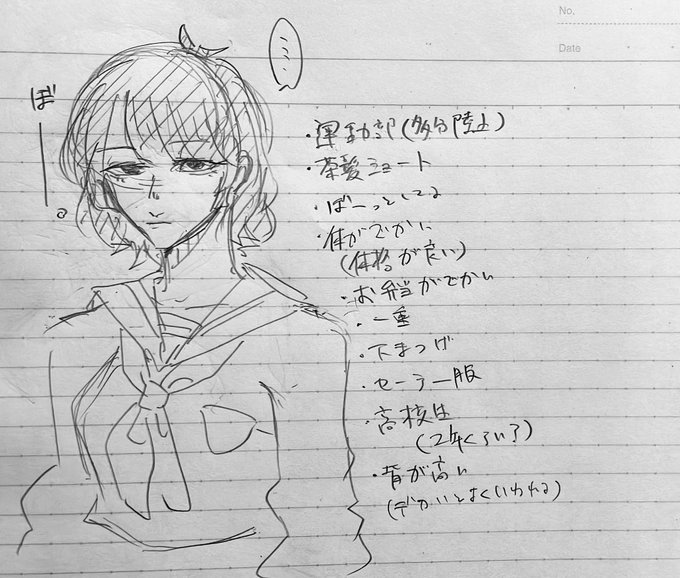 No.
Date
ぼーっ。
・運動部(多分陸上)
・茶髪ショート
・ぼーっとしてる
・体がでかい
(体格が良い)
・お弁当がでかい
・一重
・下まつげ
・セーラー服
・高校生
(2年くらい?)
・背が高い
(デカいとよくいわれる)